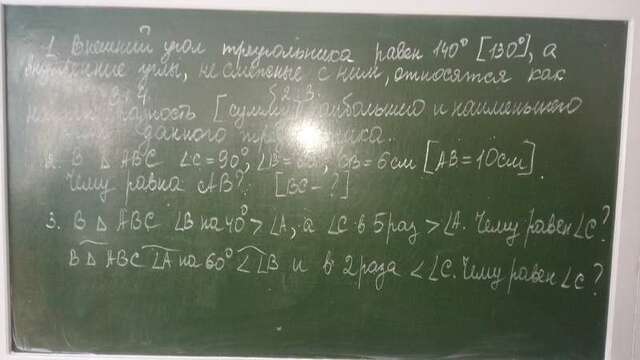 1. Внешний угол треугольника равен 140° [130°], а
внутренние углы, не смежные с ним, относятся как
3:4 [2:3].
разность [сумму] наибольшего и наименьшего
данного треугольника.
2. В △ ABC ∠C=90°, CB=6см [AB=10см].
Чему равна AB? [BC-?]
3. В △ ABC ∠B на 40° > ∠A, а ∠C в 5 раз > ∠A. Чему равен ∠C?
В △ ABC ∠A на 60° < ∠B и в 2 раза < ∠C. Чему равен ∠C?